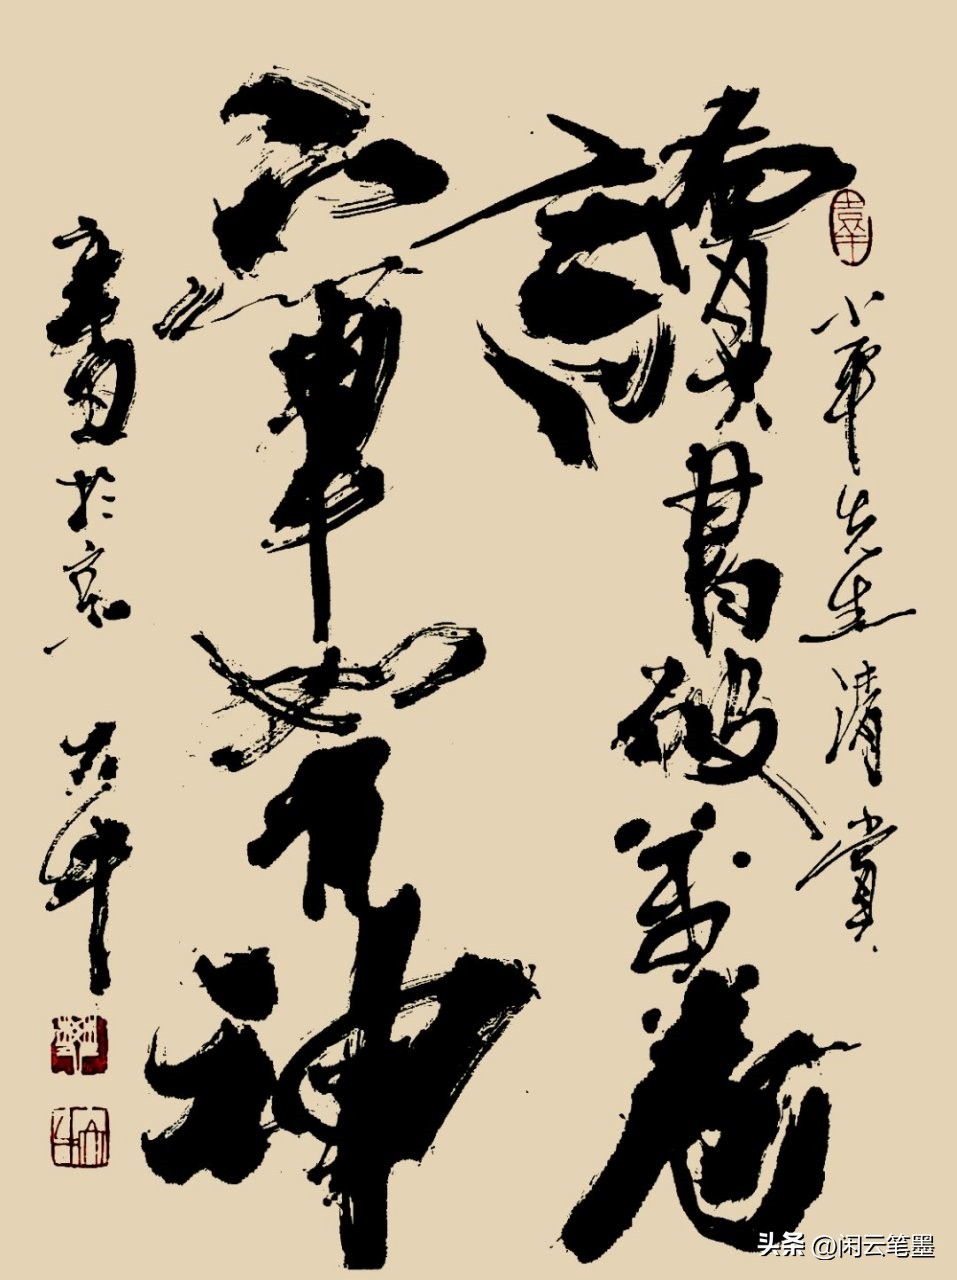 先生清賞
讀書破萬卷
下筆如有神
於京
头条 @闲云笔墨